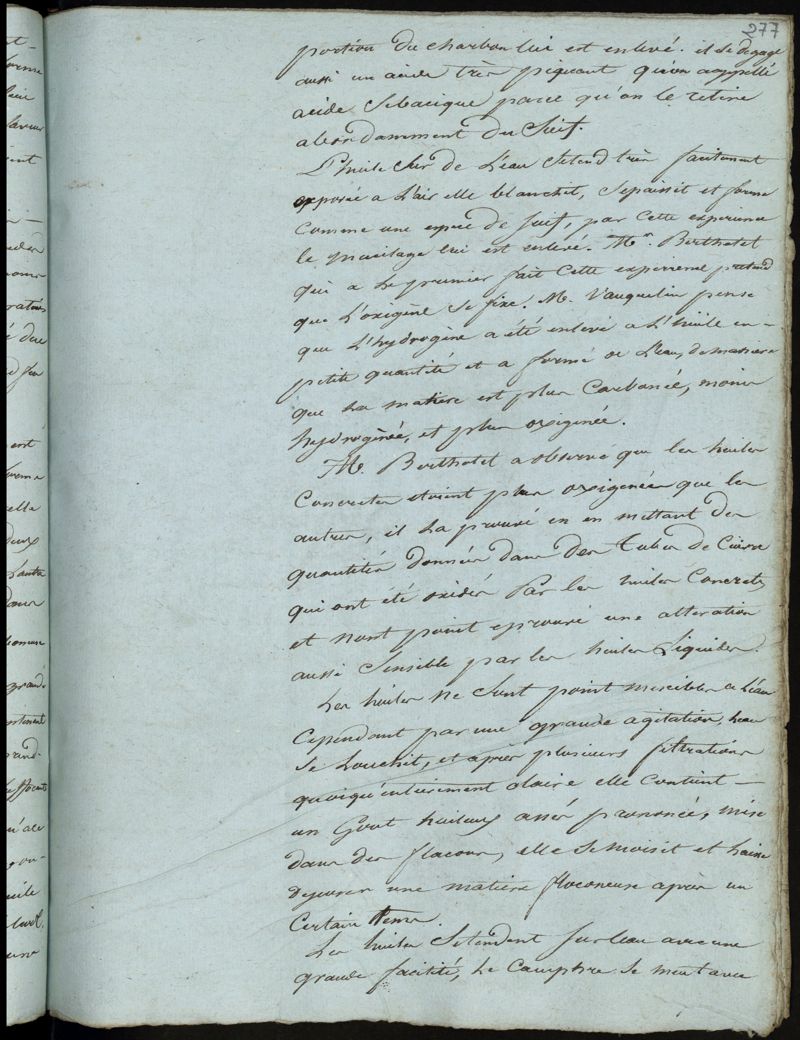 277
portion du charbon lui est enlevé. il se degage
aussi un acide très piquant qu'on appellé
acide Sebacique parce qu'on le retire
abondamment du Suif.
L'huile Sur de L'eau Setend très facilement
exposée a L'air elle blanchit, Sepaissit et forme
Comme une espece de Suif, par Cette experience
le mucilage lui est enlevé. Mr. Berthotet
qui a le premier fait Cette experience pretend
que L'oxigène Se fixe. M. Vauquelin pense
que L'hydrogène a été enlevé a L'huile en —
petite quantité et a formé de L'eau, de maniere
que La matiere est plus Carbonée, moins
hydrogènée, et plus oxigenée.
M. Berthotet a observé que les huiles
Concretes etoient plus oxigenées que les
autres, il La prouvé en en mettant des
quantités données dans des tubes de Cuivre
qui ont été oxidés Par les huiles Concretes
et nont point eprouvé une alteration
aussi Sensible par les huiles Liquides.
Les huiles ne Sont point miscibles a L'eau
Cependant par une grande agitation, Leau
Se Louchit, et après plusieurs filtrations
quoiqu'entierement claire elle Contient —
un Gout huileux assés prononcé, mise
dans des flacons, elle Se moisit et laisse
deposer une matiere floconeuse après un
Certain tems.
Les huiles Setendent Sur leau avec une
grande facilité, Le Camphre Se meut avec